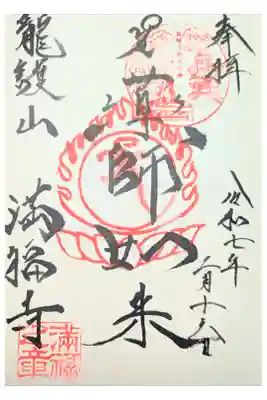 奉拝
令和七年
二月十六日
薬師如来
龍護山
満福寺
満福
之章